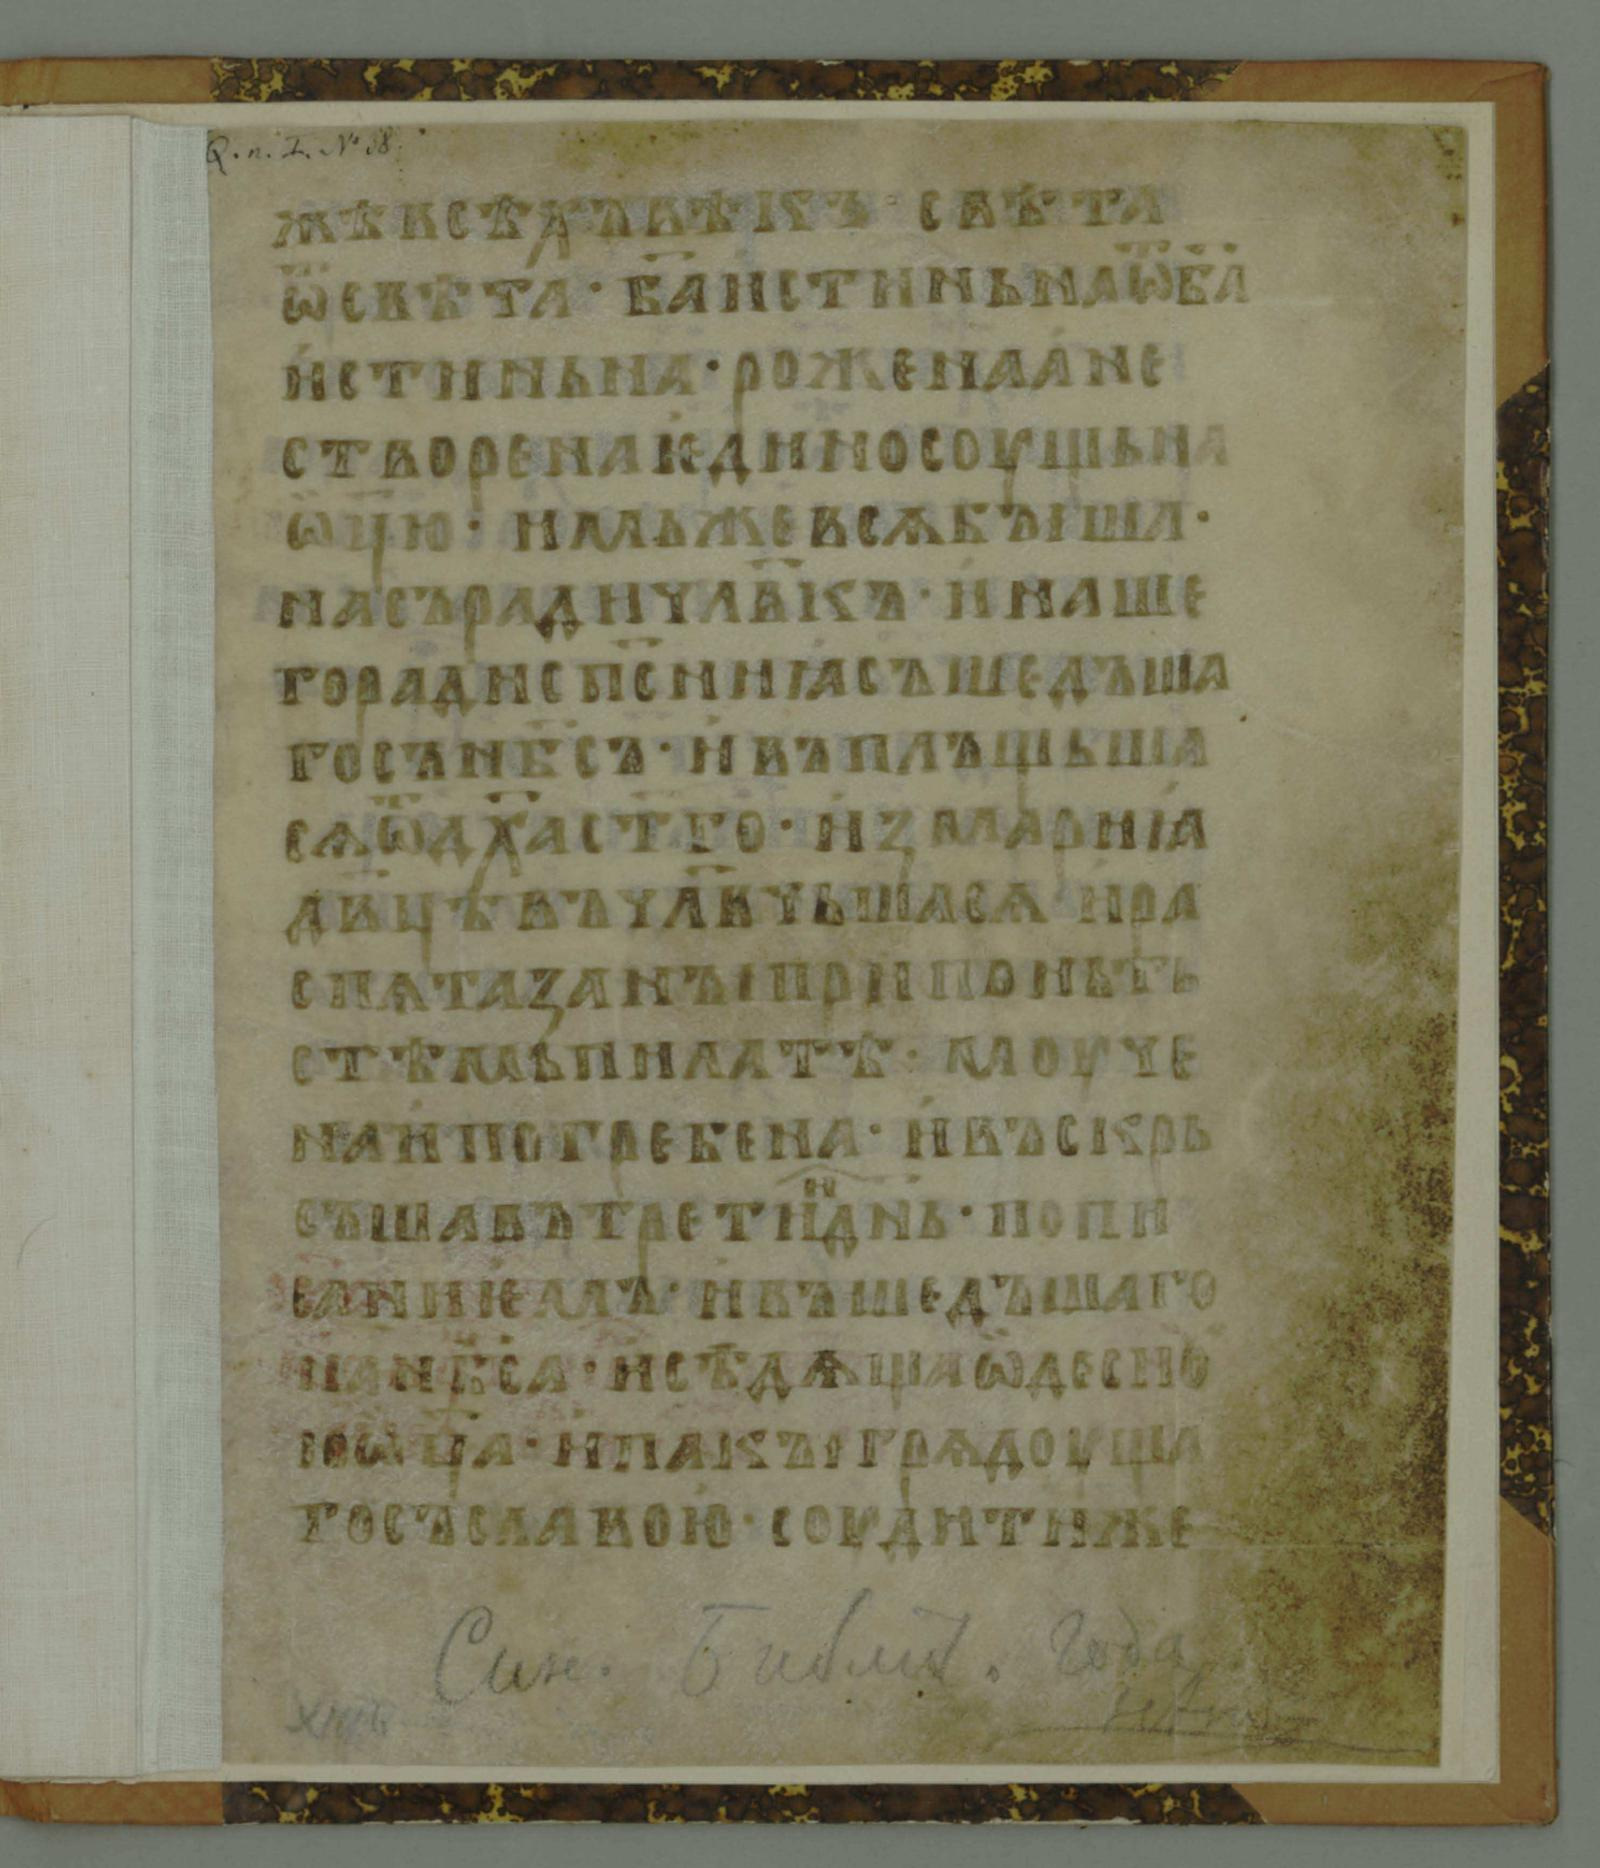 Q. п. I. № 68.
жѣвсѣхъвѣкъ · свѣта
ѿсвѣта · б҃аистиньнаѿб҃а
истиньна · роженаане
створенаѥдиносоущьна
ѿцю · имьжевсѧбꙑша ·
насърадичл҃вкъ · инаше
горадисп҃сниꙗсъшедъша
госън҃бсъ · ивъплъщьша
сѧѿд҃хаст҃го · измариꙗ
дв҃цѣвъчл҃вчьшасѧ ира
спѧтазанꙑприпоньть
стѣмьпилатѣ · моуче
наипогребена · ивъскрь
съшавътретиид҃нь · попи
саниѥмъ · ивъшедъшаго
нан҃бса · исѣдѧщаѿдесно
юѿц҃а · ипакꙑгрѧдоуща
госъславою · соудитиже
Син. Библіи. года